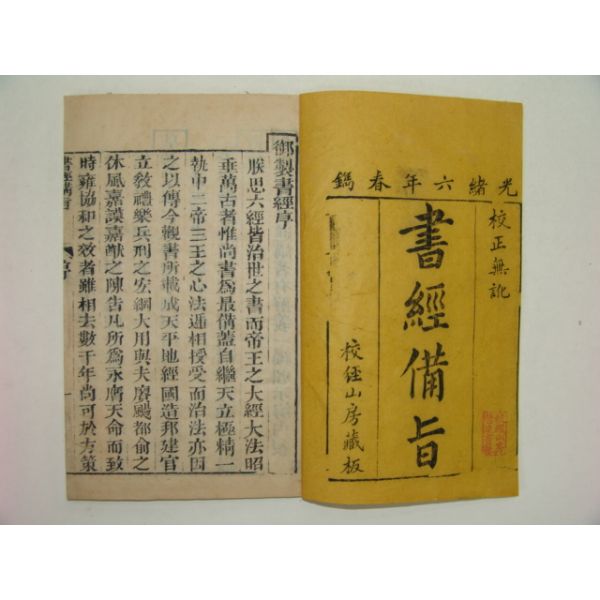 光緒六年春鐫
校正無訛
書經備旨
校經山房藏板
御製書經序
朕思六經皆治世之書而帝王之大經大法昭
垂萬古者惟尚書爲最備蓋自繼天立極精一
執中二帝三王之心法遞相授受而治法亦因
之以傳今觀書所載成天平地經國造邦建官
立敎禮樂兵刑之宏綱大用與夫賡颺都俞之
休風嘉謨嘉猷之陳告凡所爲永膺天命而致
時雍協和之效者雖相去數千年尚可於方策
書經備旨
序